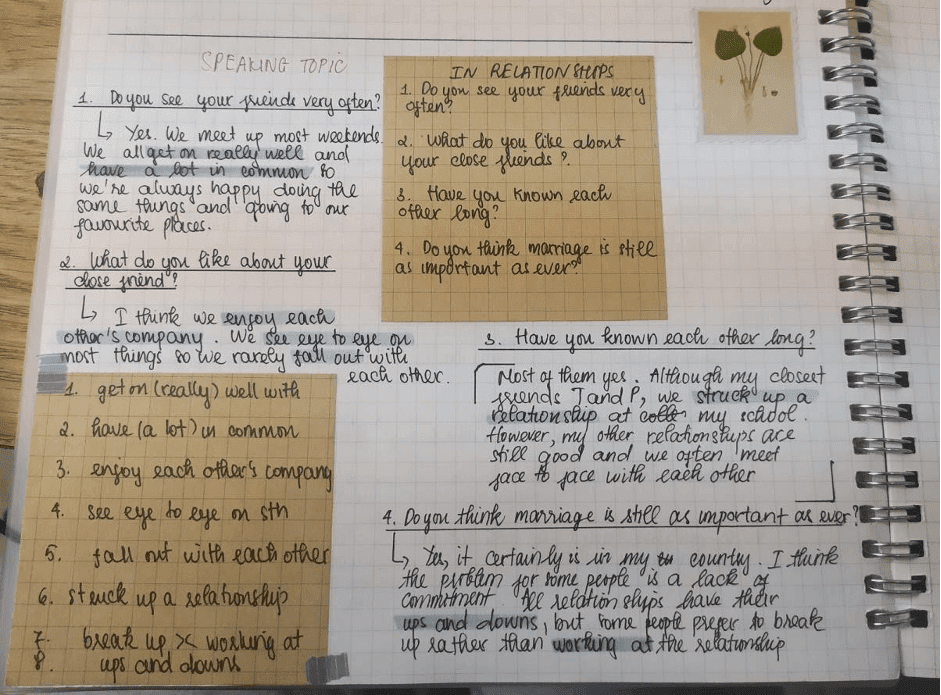 SPEAKING TOPIC
1. Do you see your friends very often?
↳ Yes. We meet up most weekends.
We all get on really well and
have a lot in common so
we're always happy doing the
same things and going to our
favourite places.
2. What do you like about your
close friend?
↳ I think we enjoy each
other's company. We see eye to eye on
most things so we rarely fall out with
each other.
IN RELATIONSHIPS
1. Do you see your friends very
often?
2. What do you like about
your close friends?
3. Have you known each
other long?
4. Do you think marriage is still
as important as ever?
1. get on (really) well with
2. have (a lot) in common
3. enjoy each other's company
4. see eye to eye on sth
5. fall out with each other
6. struck up a relationship
7. break up >< working at
8. ups and downs
3. Have you known each other long?
Most of them yes. Although my closest
friends J and P, we struck up a
relationship at my school.
However, my other relationships are
still good and we often meet
face to face with each other
4. Do you think marriage is still as important as ever?
↳ Yes, it certainly is in my country. I think
the problem for some people is a lack of
commitment. All relationships have their
ups and downs, but some people prefer to break
up rather than working at the relationship